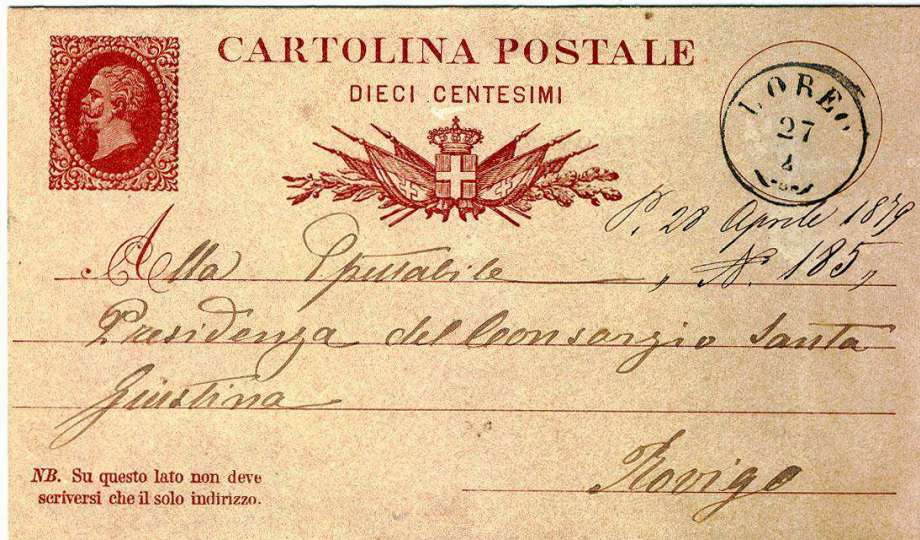 CARTOLINA POSTALE
DIECI CENTESIMI
LOREO
27
4
P. 28 Aprile 1879
N. 185,
Alla Spettabile
Presidenza del Consorzio Santa
Giustina
Rovigo
NB. Su questo lato non deve
scriversi che il solo indirizzo.